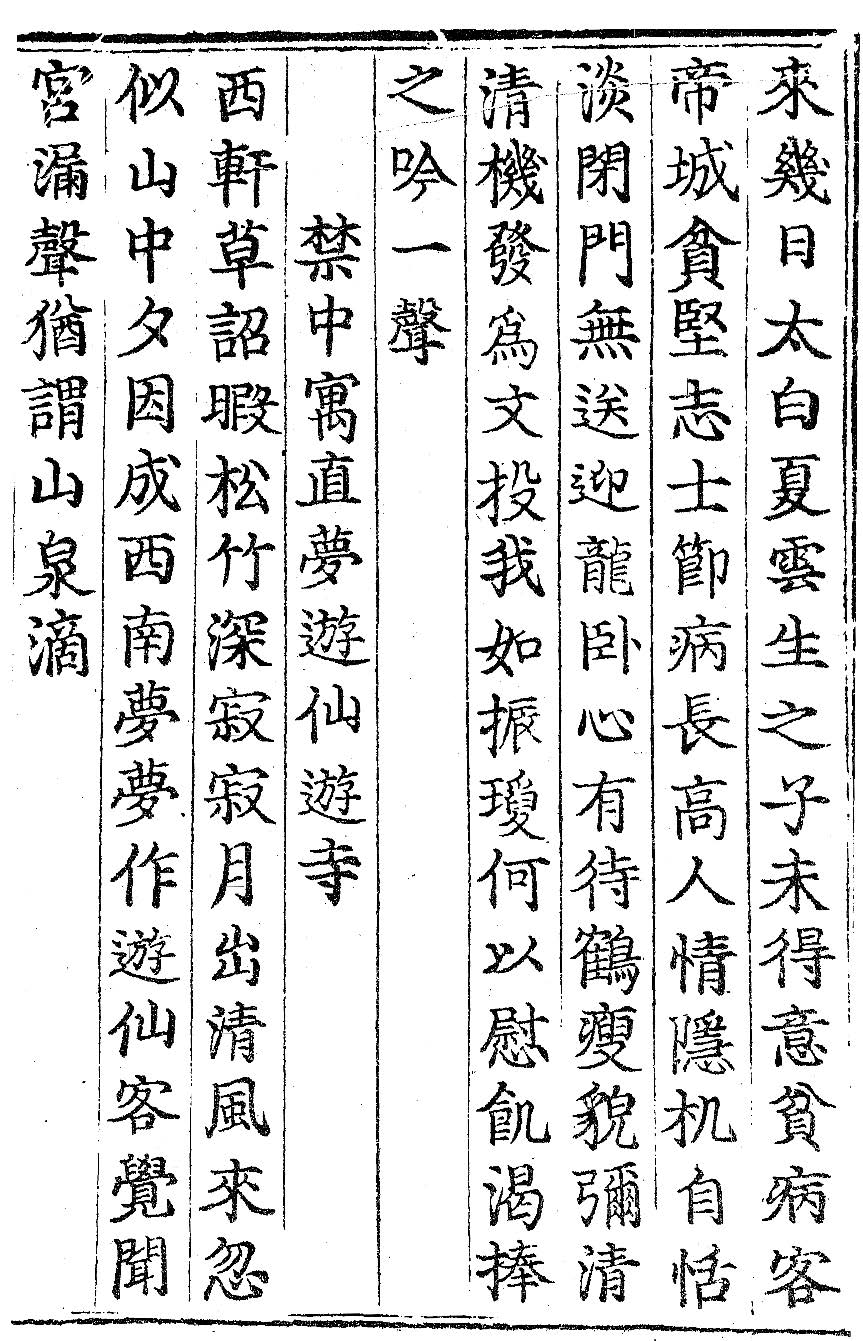 來幾日太白夏雲生之子未得意貧病客
帝城貧堅志士節病長高人情隱机自恬
淡閉門無送迎龍卧心有待鶴瘦貌彌清
清機發爲文投我如振瓊何以慰飢渴捧
之吟一聲
禁中寓直夢遊仙遊寺
西軒草詔暇松竹深寂寂月出清風來忽
似山中夕因成西南夢夢作遊仙客覺聞
宮漏聲猶謂山泉滴